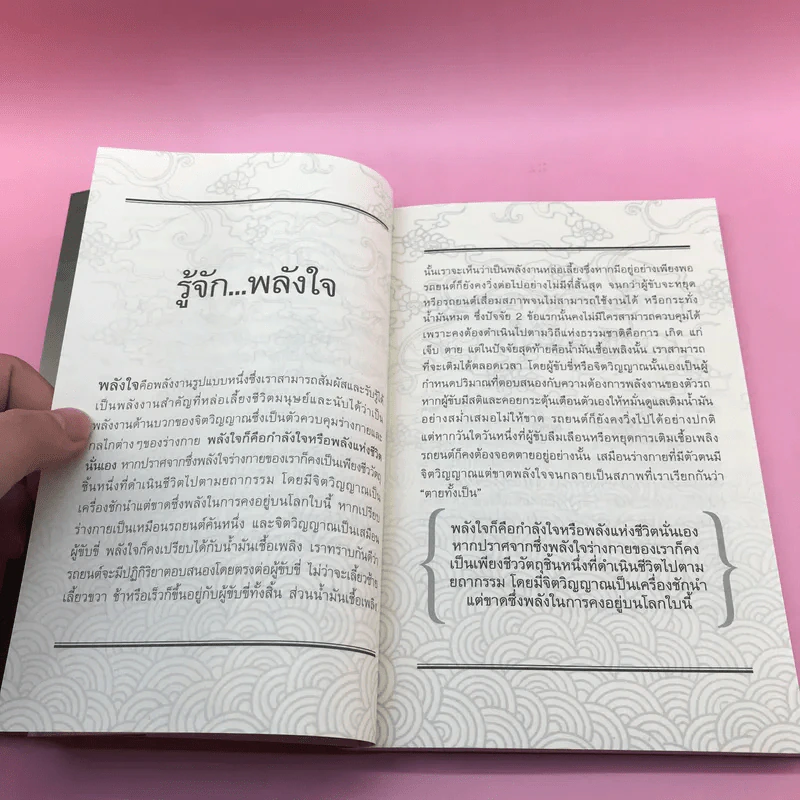 รู้จัก...พลังใจ
พลังใจคือพลังงานรูปแบบหนึ่งซึ่งเราสามารถสัมผัสและรับรู้ได้
เป็นพลังงานสำคัญที่หล่อเลี้ยงชีวิตมนุษย์และนับได้ว่าเป็น
พลังงานด้านบวกของจิตวิญญาณซึ่งเป็นตัวควบคุมร่างกายและ
กลไกต่างๆของร่างกาย พลังใจก็คือกำลังใจหรือพลังแห่งชีวิต
นั่นเอง หากปราศจากซึ่งพลังใจร่างกายของเราก็คงเป็นเพียงชีววัตถุ
ชิ้นหนึ่งที่ดำเนินชีวิตไปตามยถากรรม โดยมีจิตวิญญาณเป็น
เครื่องชักนำแต่ขาดซึ่งพลังในการคงอยู่บนโลกใบนี้ หากเปรียบ
ร่างกายเป็นเหมือนรถยนต์คันหนึ่ง และจิตวิญญาณเป็นเสมือน
ผู้ขับขี่ พลังใจก็คงเปรียบได้กับน้ำมันเชื้อเพลิง เราทราบกันดีว่า
รถยนต์จะมีปฏิกิริยาตอบสนองโดยตรงต่อผู้ขับขี่ ไม่ว่าจะเลี้ยวซ้าย
เลี้ยวขวา ช้าหรือเร็วก็ขึ้นอยู่กับผู้ขับขี่ทั้งสิ้น ส่วนน้ำมันเชื้อเพลิง
นั้นเราจะเห็นว่าเป็นพลังงานหล่อเลี้ยงซึ่งหากมีอยู่อย่างเพียงพอ
รถยนต์ก็ยังคงวิ่งต่อไปอย่างไม่มีที่สิ้นสุด จนกว่าผู้ขับจะหยุด
หรือรถยนต์เสื่อมสภาพจนไม่สามารถใช้งานได้ หรือกระทั่ง
น้ำมันหมด ซึ่งปัจจัย 2 ข้อแรกนั้นคงไม่มีใครสามารถควบคุมได้
เพราะคงต้องดำเนินไปตามวิถีแห่งธรรมชาติคือการ เกิด แก่
เจ็บ ตาย แต่ในปัจจัยสุดท้ายคือน้ำมันเชื้อเพลิงนั้น เราสามารถ
ที่จะเติมได้ตลอดเวลา โดยผู้ขับขี่หรือจิตวิญญาณนั้นเองเป็นผู้
กำหนดปริมาณที่ตอบสนองกับความต้องการพลังงานของตัวรถ
หากผู้ขับมีสติและคอยกระตุ้นเตือนตัวเองให้หมั่นดูแลเติมน้ำมัน
อย่างสม่ำเสมอไม่ให้ขาด รถยนต์ก็ยังคงวิ่งไปได้อย่างปกติ
แต่หากวันใดวันหนึ่งที่ผู้ขับลืมเลือนหรือหยุดการเติมเชื้อเพลิง
รถยนต์ก็คงต้องจอดตายอยู่อย่างนั้น เสมือนร่างกายที่มีตัวตนมี
จิตวิญญาณแต่ขาดพลังใจจนกลายเป็นสภาพที่เราเรียกกันว่า
“ตายทั้งเป็น”
พลังใจก็คือกำลังใจหรือพลังแห่งชีวิตนั่นเอง
หากปราศจากซึ่งพลังใจร่างกายของเราก็คง
เป็นเพียงชีววัตถุชิ้นหนึ่งที่ดำเนินชีวิตไปตาม
ยถากรรม โดยมีจิตวิญญาณเป็นเครื่องชักนำ
แต่ขาดซึ่งพลังในการคงอยู่บนโลกใบนี้